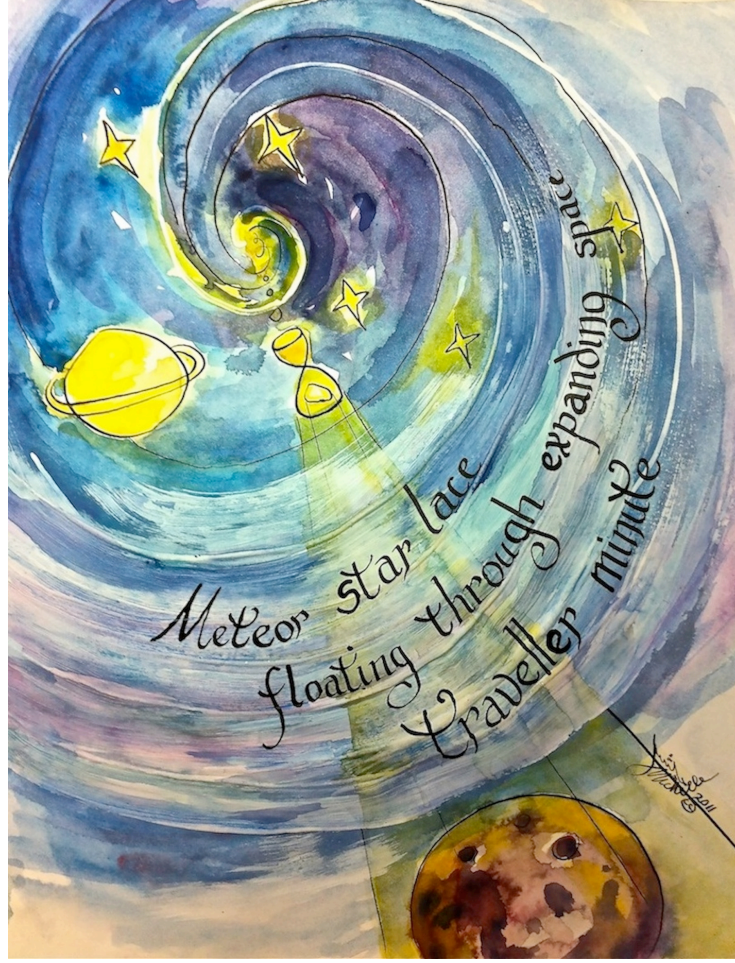 Meteor star lace
floating through expanding space
traveller minute
© 2011